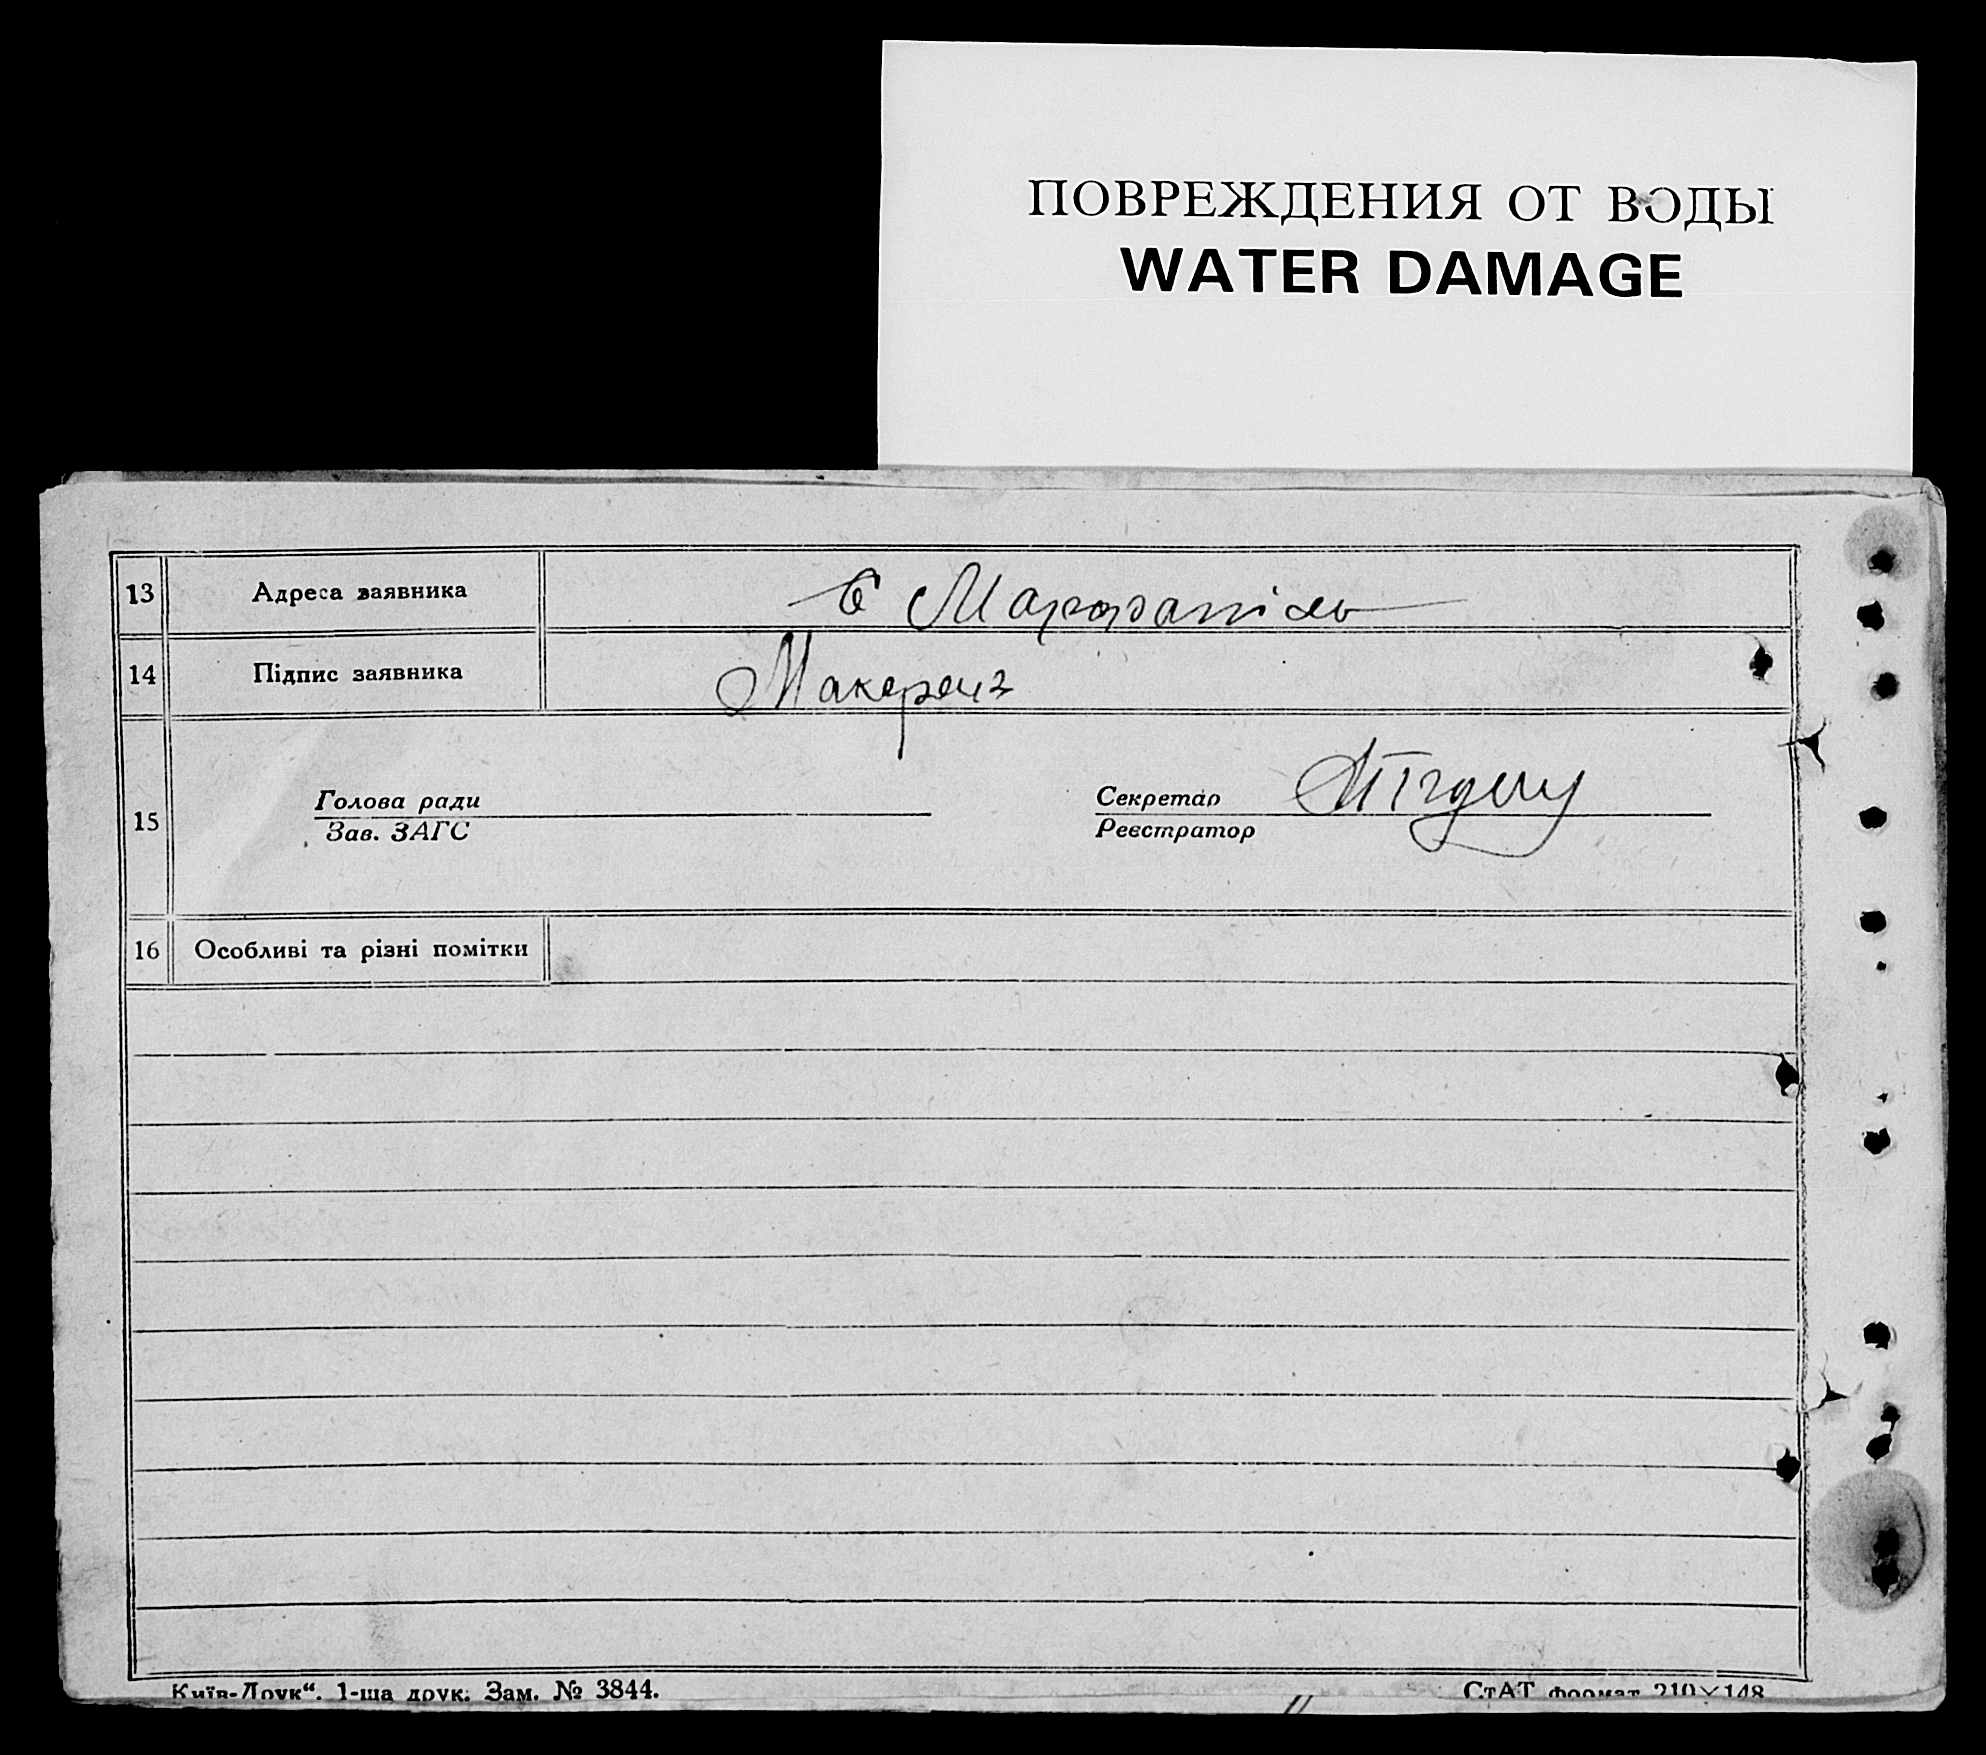 ПОВРЕЖДЕНИЯ ОТ ВОДЫ
WATER DAMAGE
13 Адреса заявника
14 Підпис заявника
15
Голова ради
Зав. ЗАГС
Секретар
Реєстратор
16 Особливі та різні помітки
Київ-Друк“. 1-ша друк. Зам. № 3844.
СтАТ формат 210×148